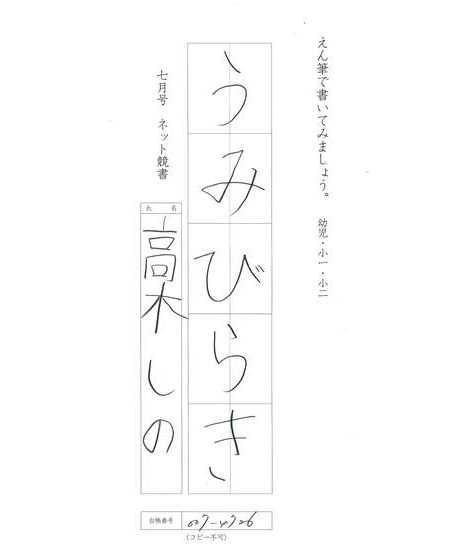 えん筆で書いてみましょう。 幼児・小一・小二
うみびらき
七月号 ネット競書
氏名
高木しの
台帳番号
(コピー不可)